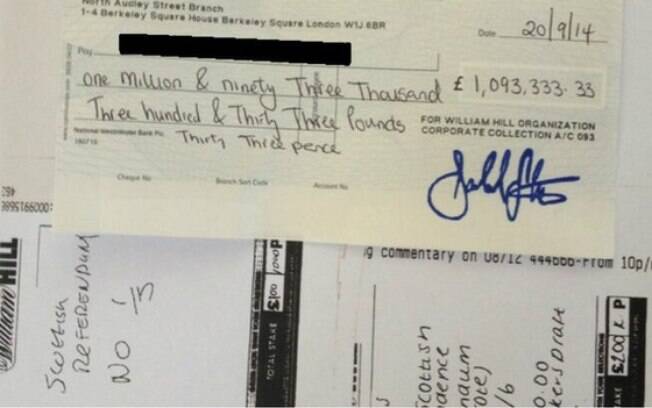 North Audley Street Branch
1-4 Berkeley Square House Berkeley Square London W1J 6BR
Date 20/9/14
Pay
one million & ninety Three Thousand £ 1,093,333.33
Three hundred & Thirty Three Pounds
Thirty Three pence
FOR WILLIAM HILL ORGANIZATION
CORPORATE COLLECTION A/C 093
National Westminster Bank Plc
Cheque No Branch Sort Code Account No
g commentary on 08/12 444666-From 10p/
William HILL
Scottish
REFERENDUM
NO 1/5
TOTAL STAKE £100
cottish
dence
ndum
ote)
/6
0.00
kers Drake
AKE £200 K P